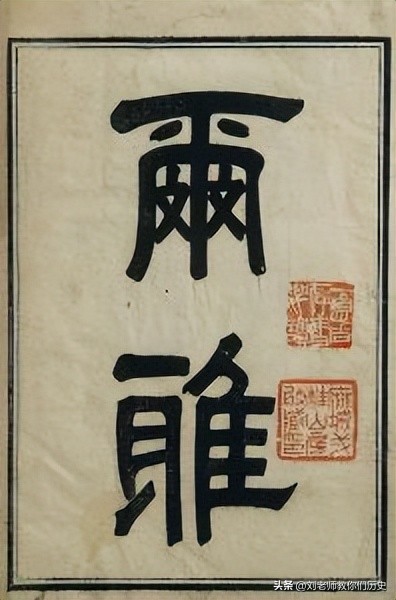 爾
雅
头条 @刘老师教你们历史